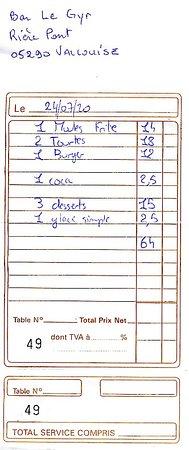 Bar Le Gyr
Rière Pont
05290 Vallouise
Le 24/07/20
1 Moules Frite 14
2 Tourtes 18
1 Burger 12
1 coca 2,5
3 desserts 15
1 glace simple 2,5
64
Table N° Total Prix Net
49 dont TVA à %
Table N°
49
TOTAL SERVICE COMPRIS